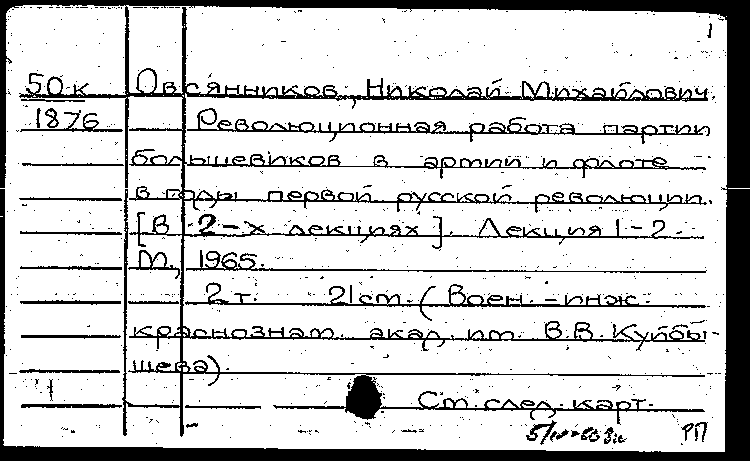 1
50к Овсянников, Николай Михайлович.
1876 Революционная работа партии
большевиков в армии и флоте
в годы первой русской революции.
[В 2-х лекциях]. Лекция 1-2.
М., 1965.
2 т. 21 ст. (Воен.-инж.
краснознам. акад. им. В.В. Куйбы-
шева).
Ст. след. карт.
РП